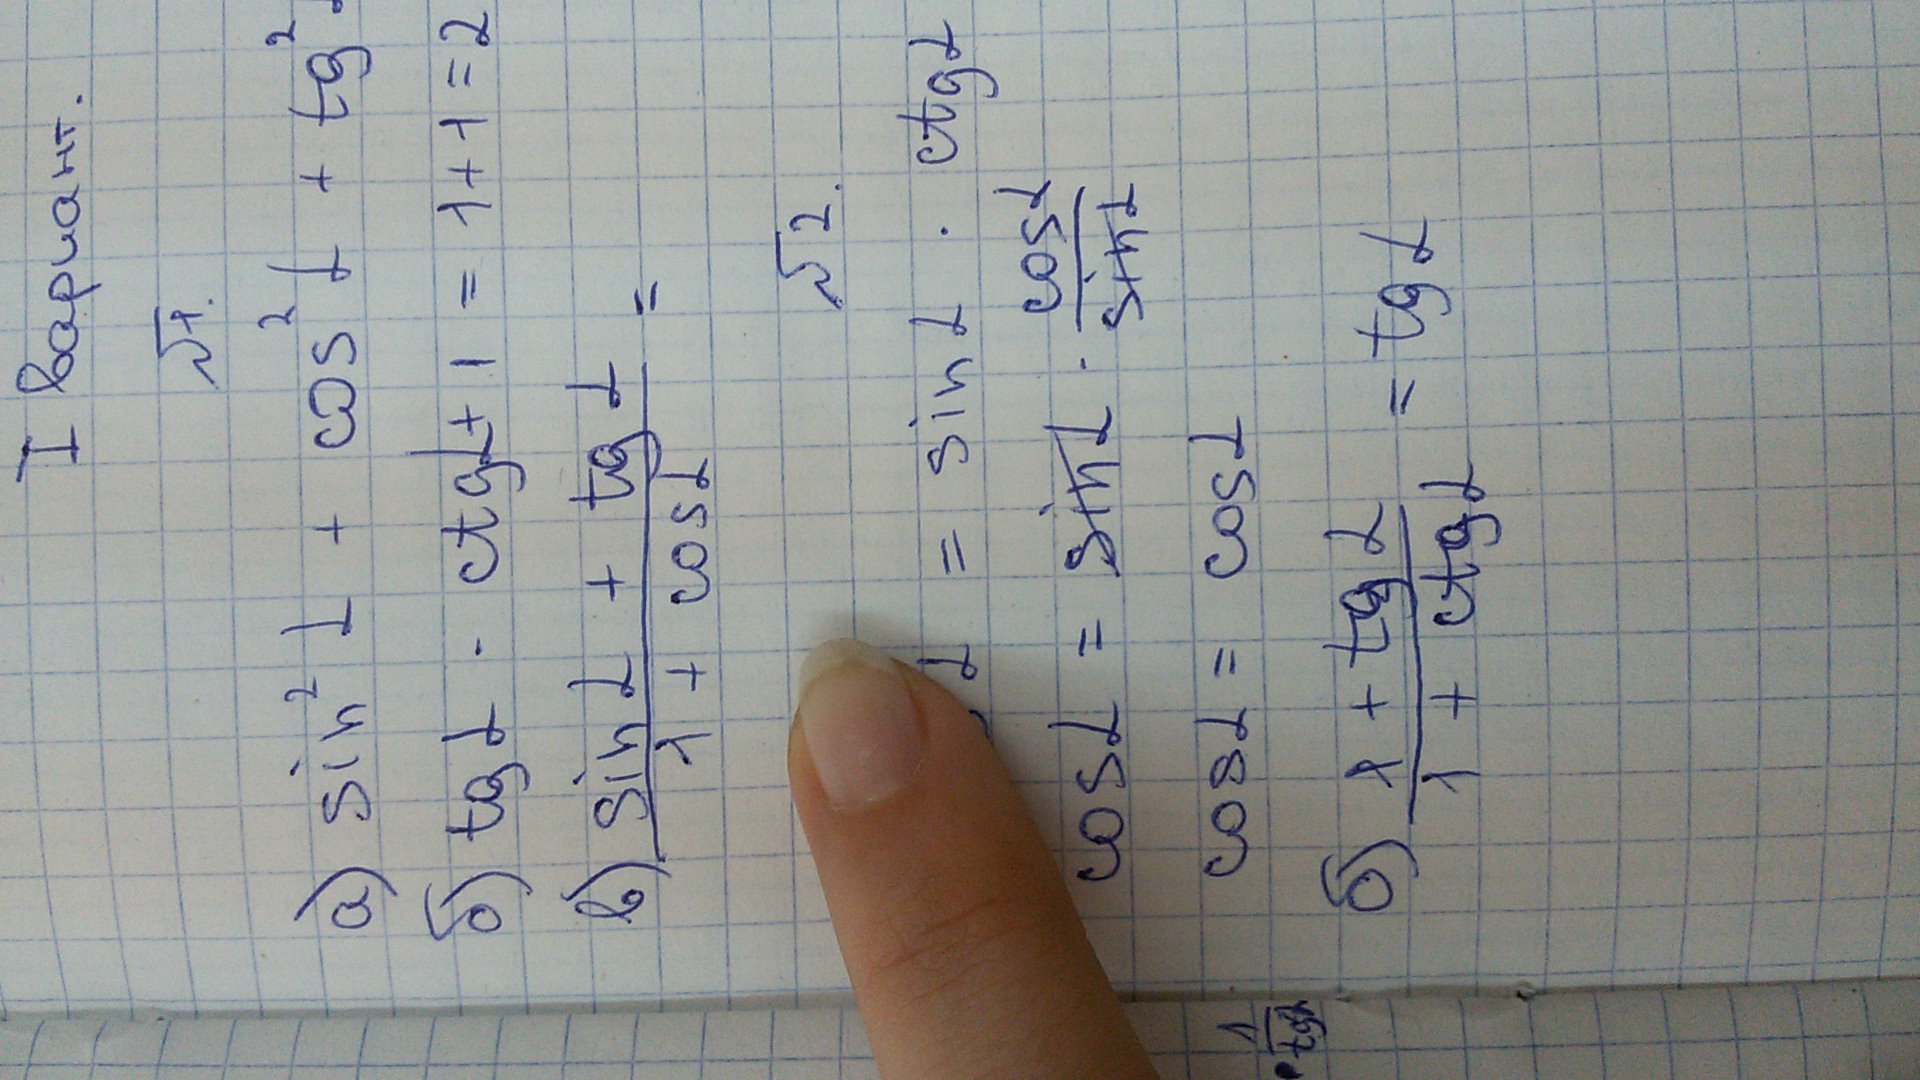 I вариант.
№1.
а) sin²α + cos²α + tg²
б) tgα · ctgα + 1 = 1 + 1 = 2
в) (sinα + tgα)/(1 + cosα) =
№2.
α = sinα · ctgα
cosα = sinα · cosα/sinα
cosα = cosα
б) (1 + tgα)/(1 + ctgα) = tgα
1/tgα